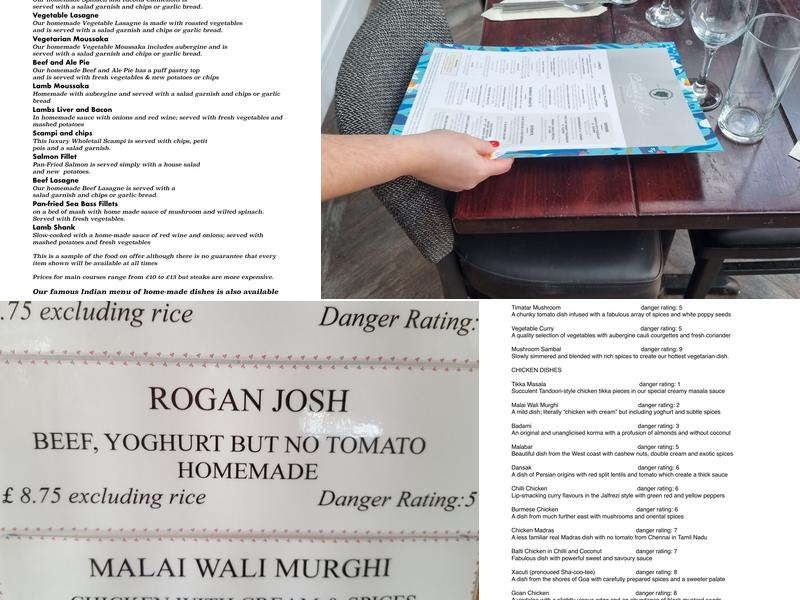 served with a salad garnish and chips or garlic bread.
Vegetable Lasagne
Our homemade Vegetable Lasagne is made with roasted vegetables
and is served with a salad garnish and chips or garlic bread.
Vegetarian Moussaka
Our homemade Vegetable Moussaka includes aubergine and is
served with a salad garnish and chips or garlic bread.
Beef and Ale Pie
Our homemade Beef and Ale Pie has a puff pastry top
and is served with fresh vegetables & new potatoes or chips
Lamb Moussaka
Homemade with aubergine and served with a salad garnish and chips or garlic
bread
Lambs Liver and Bacon
In homemade sauce with onions and red wine; served with fresh vegetables and
mashed potatoes
Scampi and chips
This luxury Wholetail Scampi is served with chips, petit
pois and a salad garnish.
Salmon Fillet
Pan-Fried Salmon is served simply with a house salad
and new potatoes.
Beef Lasagne
Our homemade Beef Lasagne is served with a
salad garnish and chips or garlic bread.
Pan-fried Sea Bass Fillets
on a bed of mash with home made sauce of mushroom and wilted spinach.
Served with fresh vegetables.
Lamb Shank
Slow-cooked with a home-made sauce of red wine and onions; served with
mashed potatoes and fresh vegetables
This is a sample of the food on offer although there is no guarantee that every
item shown will be available at all times
Prices for main courses range from £10 to £13 but steaks are more expensive.
Our famous Indian menu of home-made dishes is also available
.75 excluding rice Danger Rating:
ROGAN JOSH
BEEF, YOGHURT BUT NO TOMATO
HOMEMADE
£ 8.75 excluding rice Danger Rating:5
MALAI WALI MURGHI
CHICKEN WITH CREAM & SPICES
Timatar Mushroom danger rating: 5
A chunky tomato dish infused with a fabulous array of spices and white poppy seeds
Vegetable Curry danger rating: 5
A quality selection of vegetables with aubergine cauli courgettes and fresh coriander
Mushroom Sambal danger rating: 9
Slowly simmered and blended with rich spices to create our hottest vegetarian dish.
CHICKEN DISHES
Tikka Masala danger rating: 1
Succulent Tandoori-style chicken tikka pieces in our special creamy masala sauce
Malai Wali Murghi danger rating: 2
A mild dish; literally "chicken with cream" but including yoghurt and subtle spices
Badami danger rating: 3
An original and unanglicised korma with a profusion of almonds and without coconut
Malabar danger rating: 5
Beautiful dish from the West coast with cashew nuts, double cream and exotic spices
Dansak danger rating: 6
A dish of Persian origins with red split lentils and tomato which create a thick sauce
Chilli Chicken danger rating: 6
Lip-smacking curry flavours in the Jalfrezi style with green red and yellow peppers
Burmese Chicken danger rating: 6
A dish from much further east with mushrooms and oriental spices
Chicken Madras danger rating: 7
A less familiar real Madras dish with no tomato from Chennai in Tamil Nadu
Balti Chicken in Chilli and Coconut danger rating: 7
Fabulous dish with powerful sweet and savoury sauce
Xacuti (pronouced Sha-coo-tee) danger rating: 8
A dish from the shores of Goa with carefully prepared spices and a sweeter palate
Goan Chicken danger rating: 8